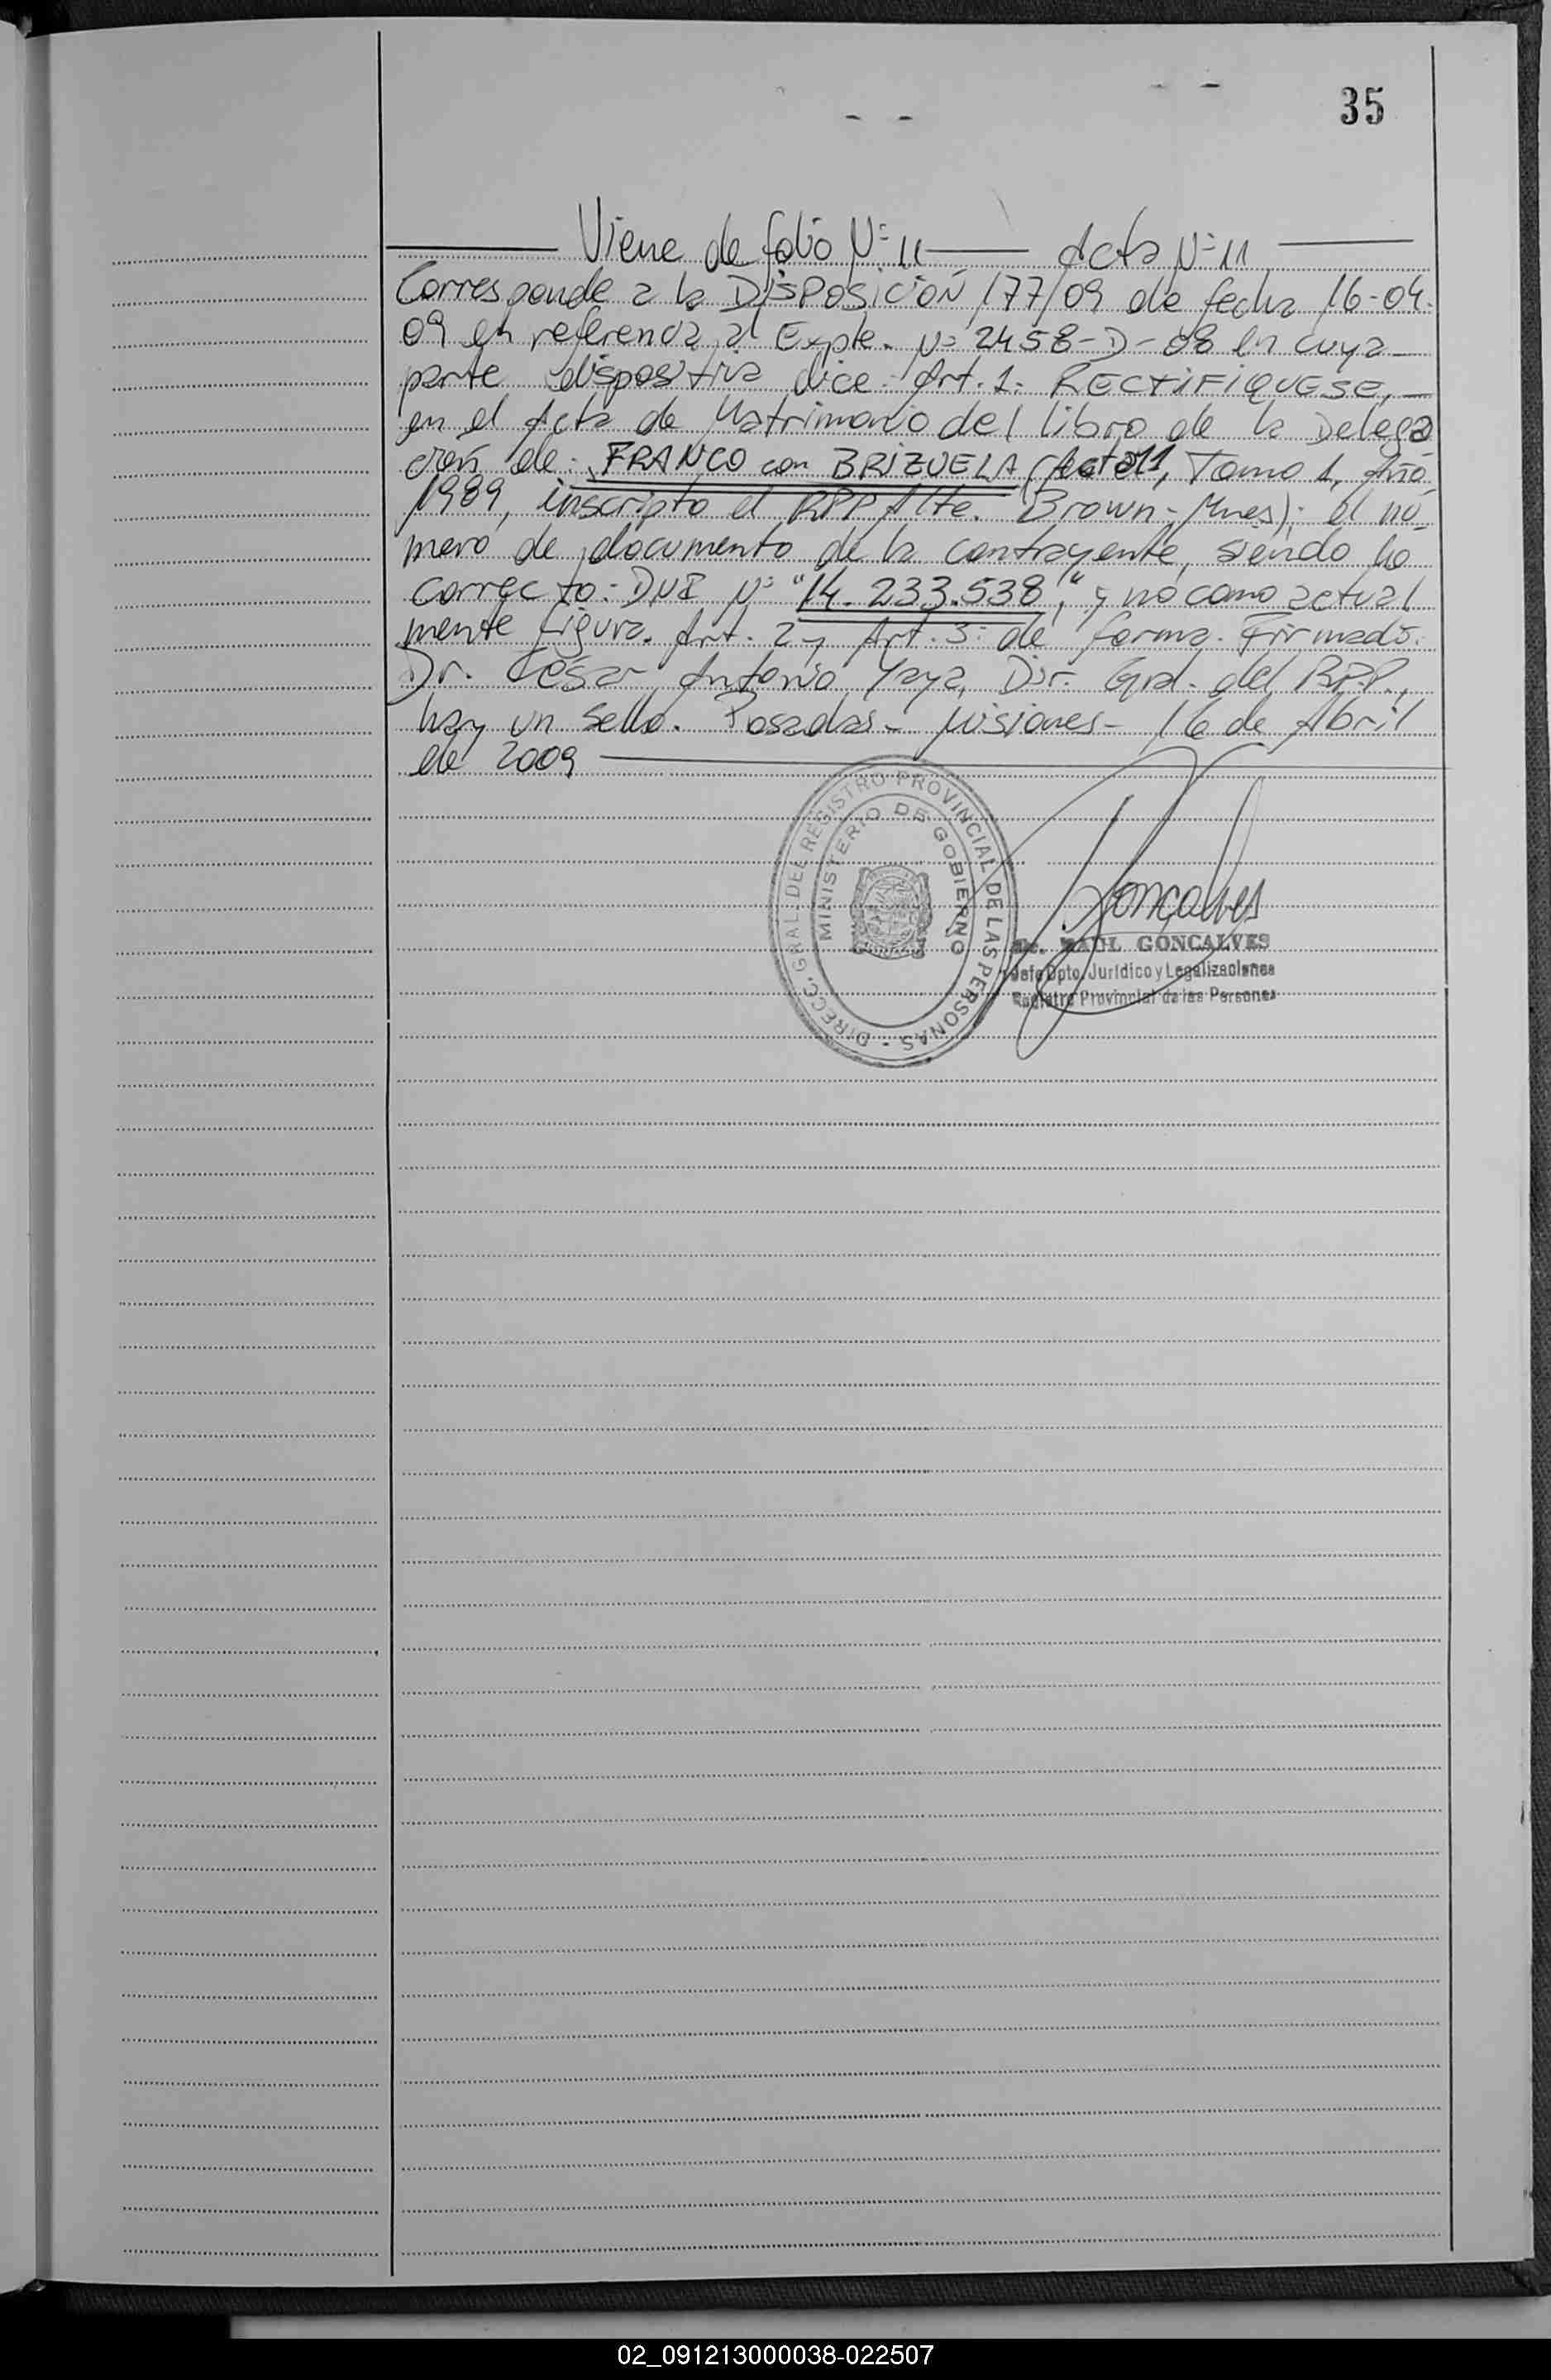 35
Viene de folio Nº 11 Acta Nº 11
Corresponde a la DISPOSICIÓN 177/09 de fecha 16-04-
09 en referencia al Expte. Nº 2458-D-08 en cuya
parte dispositiva dice: Art. 1: RECTIFIQUESE,
en el Acta de Matrimonio del libro de la Delega
ción de: FRANCO con BRIZUELA (Acta 11, Tomo 1, Año
1989, inscripto el RPP Alte. Brown- Mnes); el nú-
mero de documento de la contrayente, siendo lo
correcto: DNI Nº "14.233.538", y no como actual
mente figura. Art. 2 y Art. 3: de forma. Firmado:
Dr. César Antonio Yaya, Dir. Gral. del R.P.P.,
hay un sello. Posadas- Misiones- 16 de Abril
de 2009
DIRECC. GRAL. DEL REGISTRO PROVINCIAL DE LAS PERSONAS -
MINISTERIO DE GOBIERNO
Goncalves
RAUL GONCALVES
Jefe Dpto. Jurídico y Legalizaciones
Registro Provincial de las Personas
02_091213000038-022507